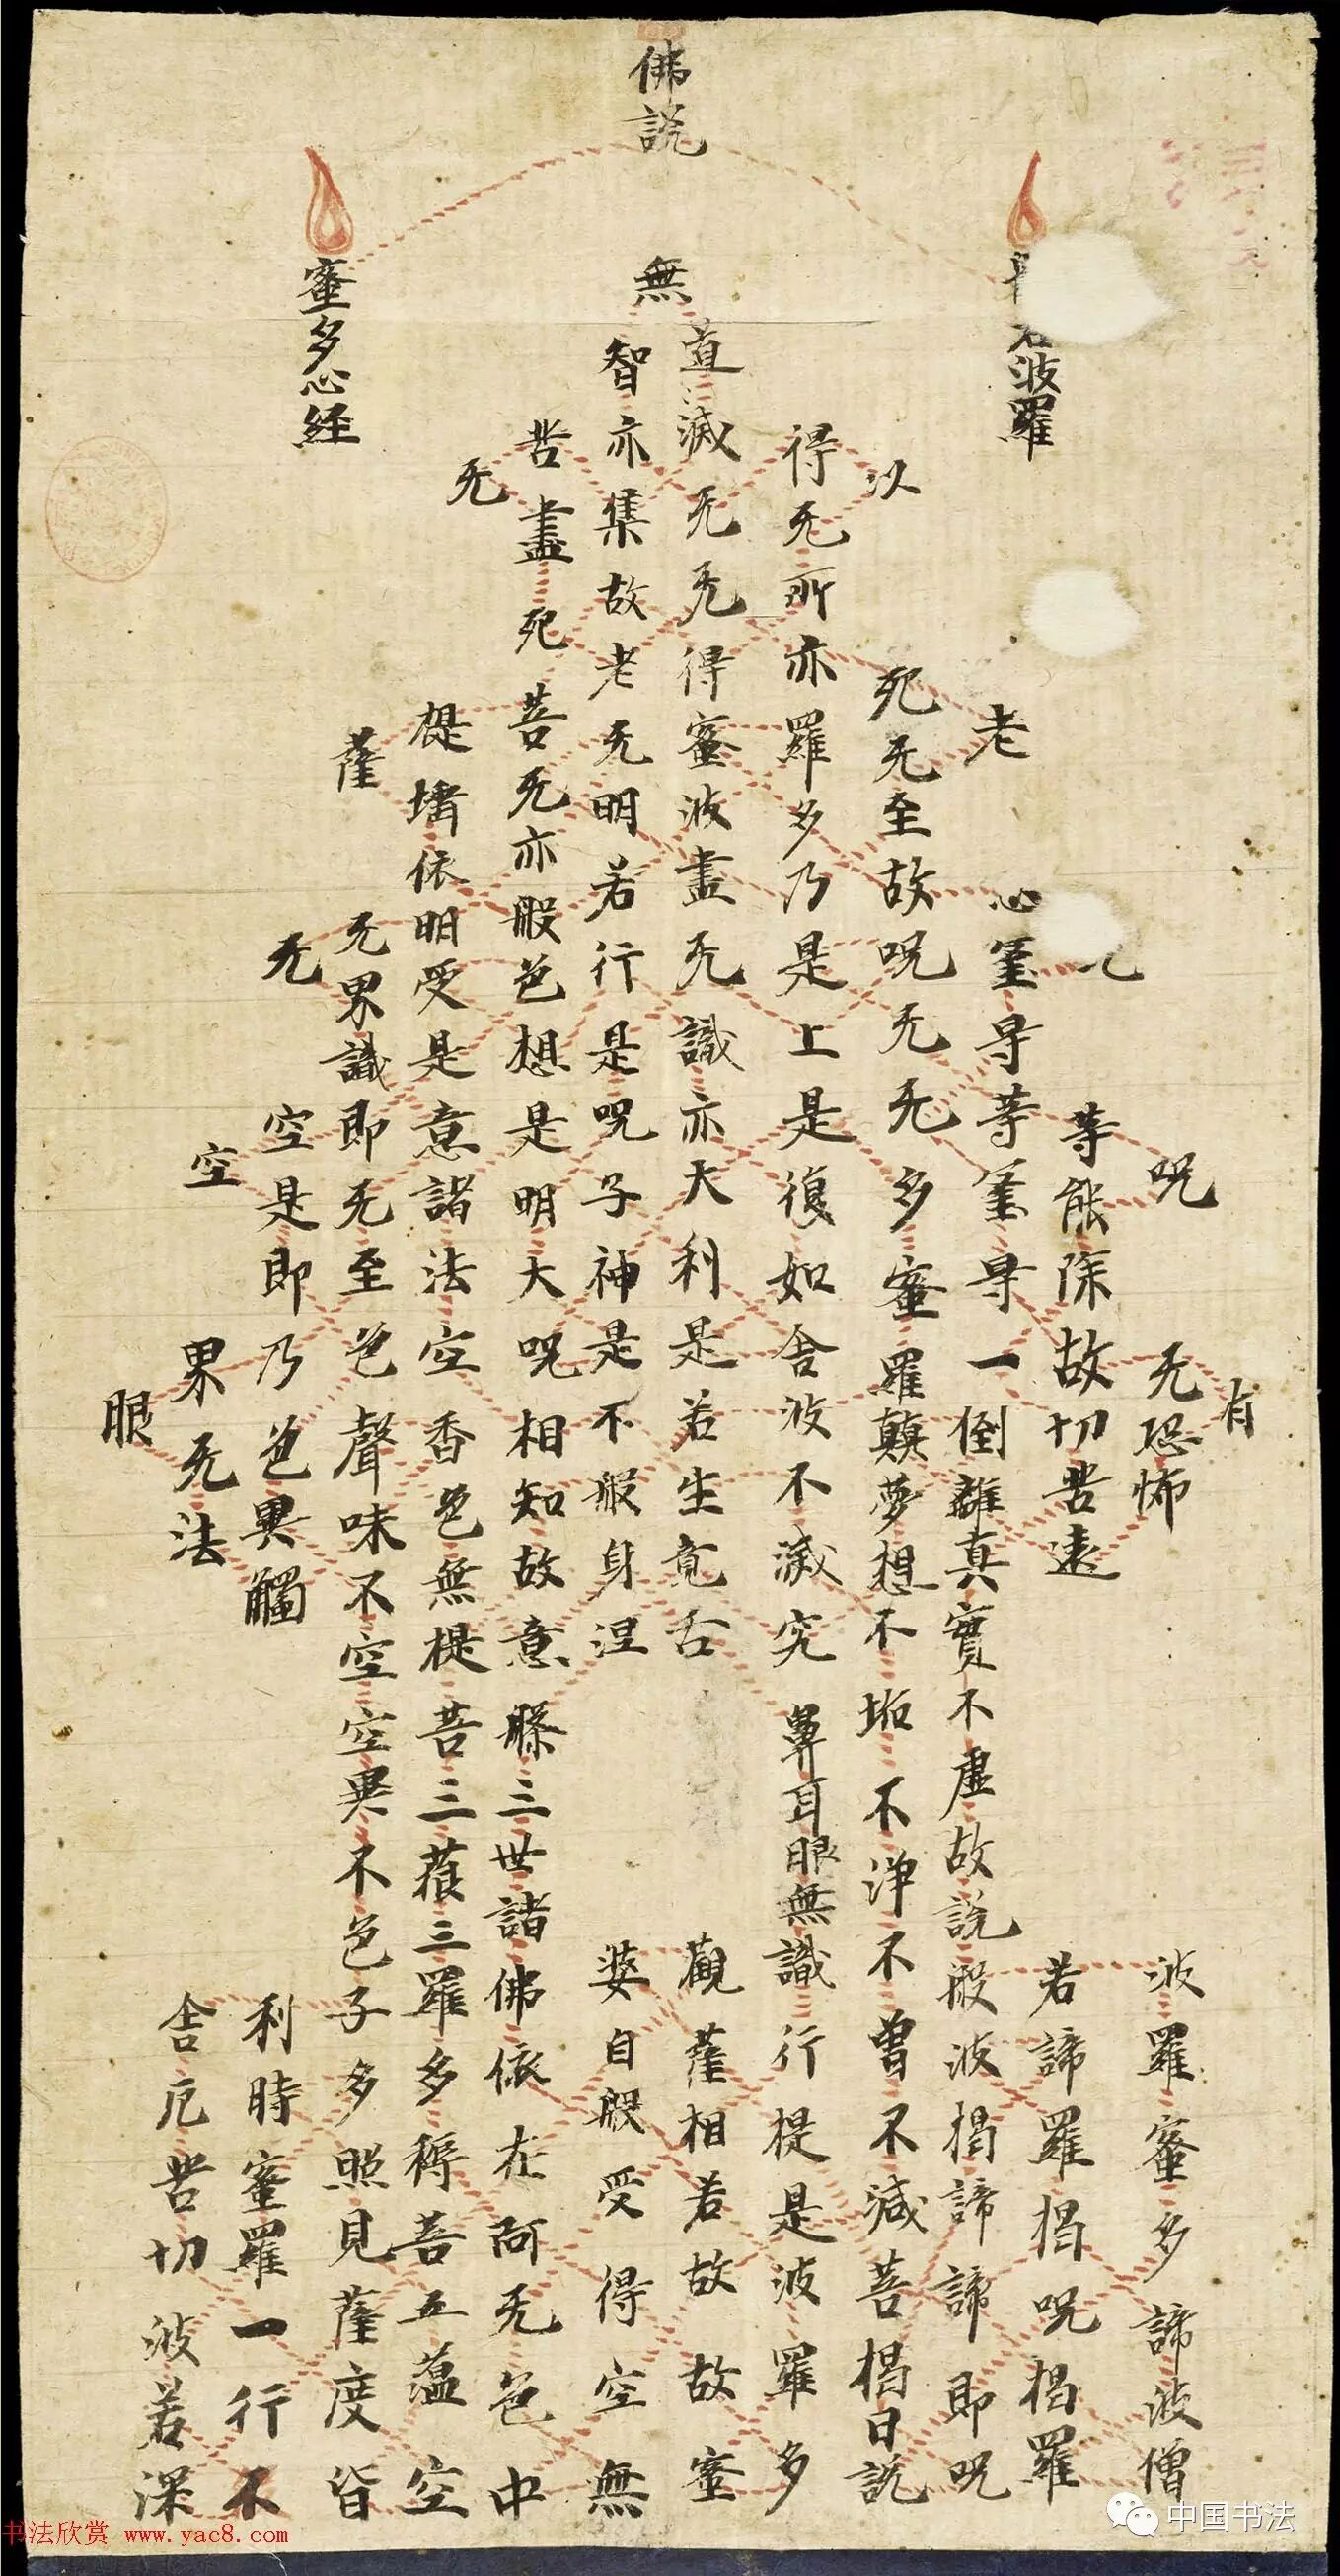 佛說
若波羅
蜜多心經
有
呪无恐怖波羅蜜多諦波僧
等能除故切苦遠若諦羅揭呪揭羅
老心罣㝵等罣㝵一倒離真實不虛故說般波揭諦諦即呪
以死无至故呪无无多蜜羅顛夢想不垢不淨不曾不減菩揭曰說
得无所亦羅多乃是上是復如舍波不滅究鼻耳眼無識行提是波羅多
無道滅无无得蜜波盡无識亦大利是若生竟舌觀薩相若故故蜜
智亦集故老无明若行是呪子神是不般身涅婆自般受得空無
苦盡死菩无亦般色想是明大呪相知故意槃三世諸佛依在阿无色中
无提埵依明受是意諸法空香色無提菩三藐三羅多稱菩五蘊空
薩无界識即无至色聲味不空空異不色子多照見薩度皆
无空是即乃色異觸利時蜜羅一行不
空界无法舍厄苦切波若深
眼
书法欣赏 www.yac8.com
中国书法